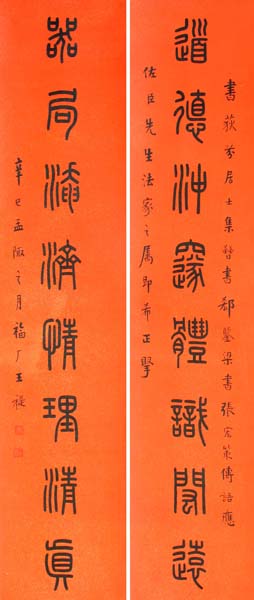 書荻芬居士集晉書郗鑒梁書張宏策傳語應
道德沖邃體識閎遠
佐臣先生法家之属即希正擥
器局淹濟情理清貞
辛巳孟陬之月福厂王禔